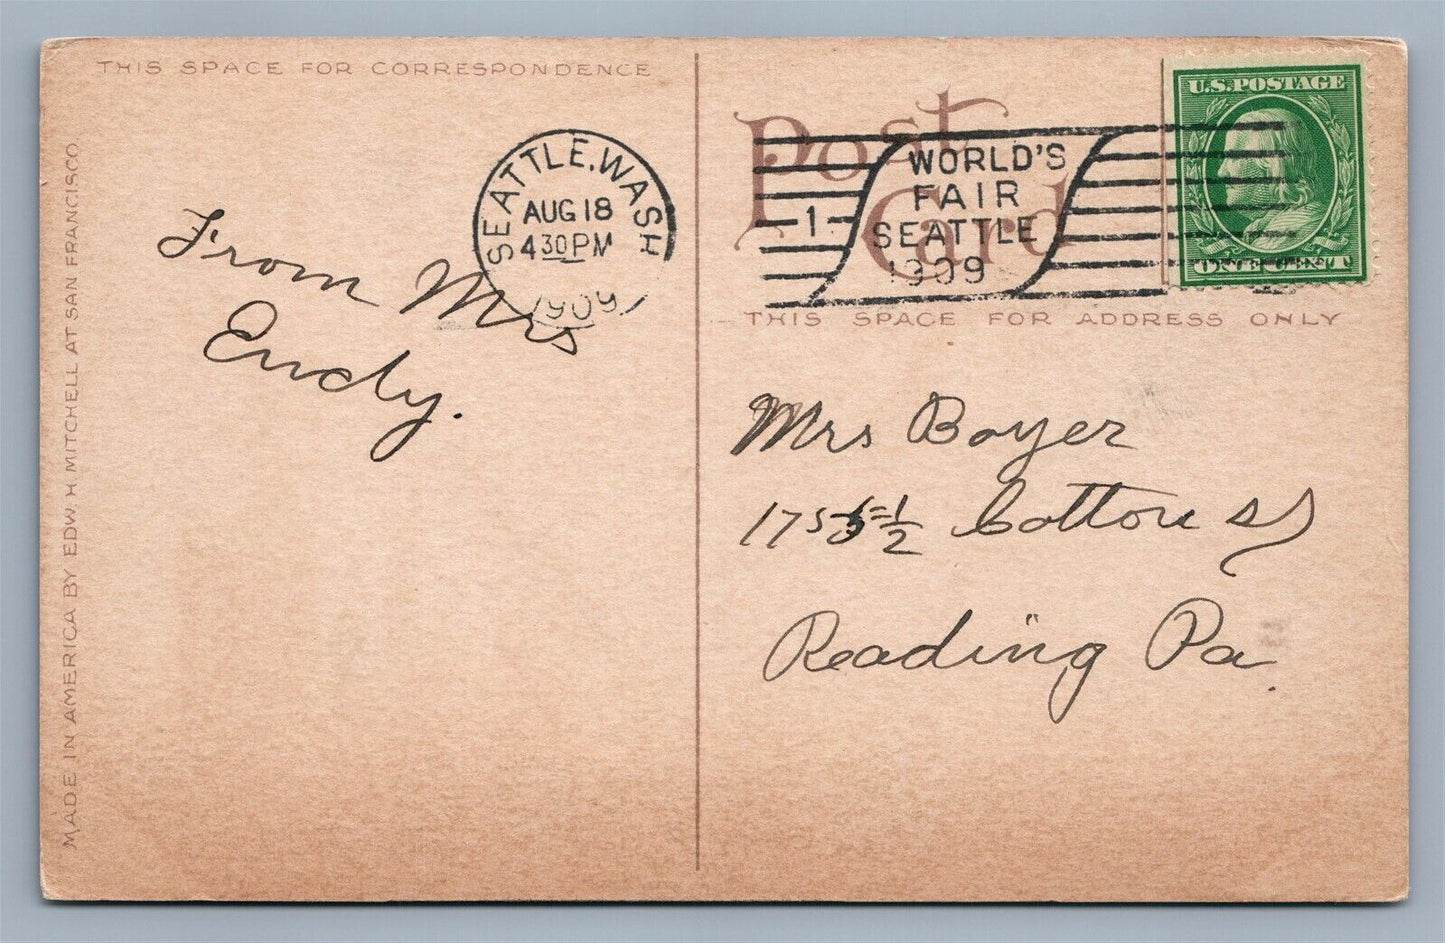 THIS SPACE FOR CORRESPONDENCE
MADE IN AMERICA BY EDW. H. MITCHELL AT SAN FRANCISCO
SEATTLE, WASH
AUG 18
4 30 PM
1909
From Mrs
Eudy.
Post
Card
1
WORLD'S
FAIR
SEATTLE
1909
U.S. POSTAGE
ONE CENT
THIS SPACE FOR ADDRESS ONLY
Mrs Boyer
1/2 Cotton St
Reading Pa.